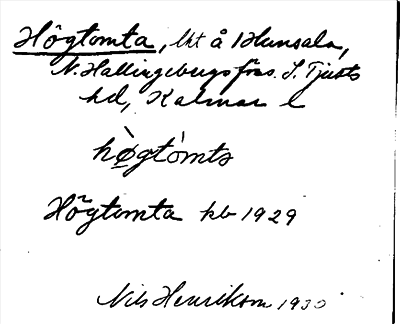 Högtomta, lht å Blansala,
N. Hallingebergs frss. S. Tjusts
hd, Kalmar l
hø̀gtòmta
Högtomta kb 1929
Nils Henrikson 1930